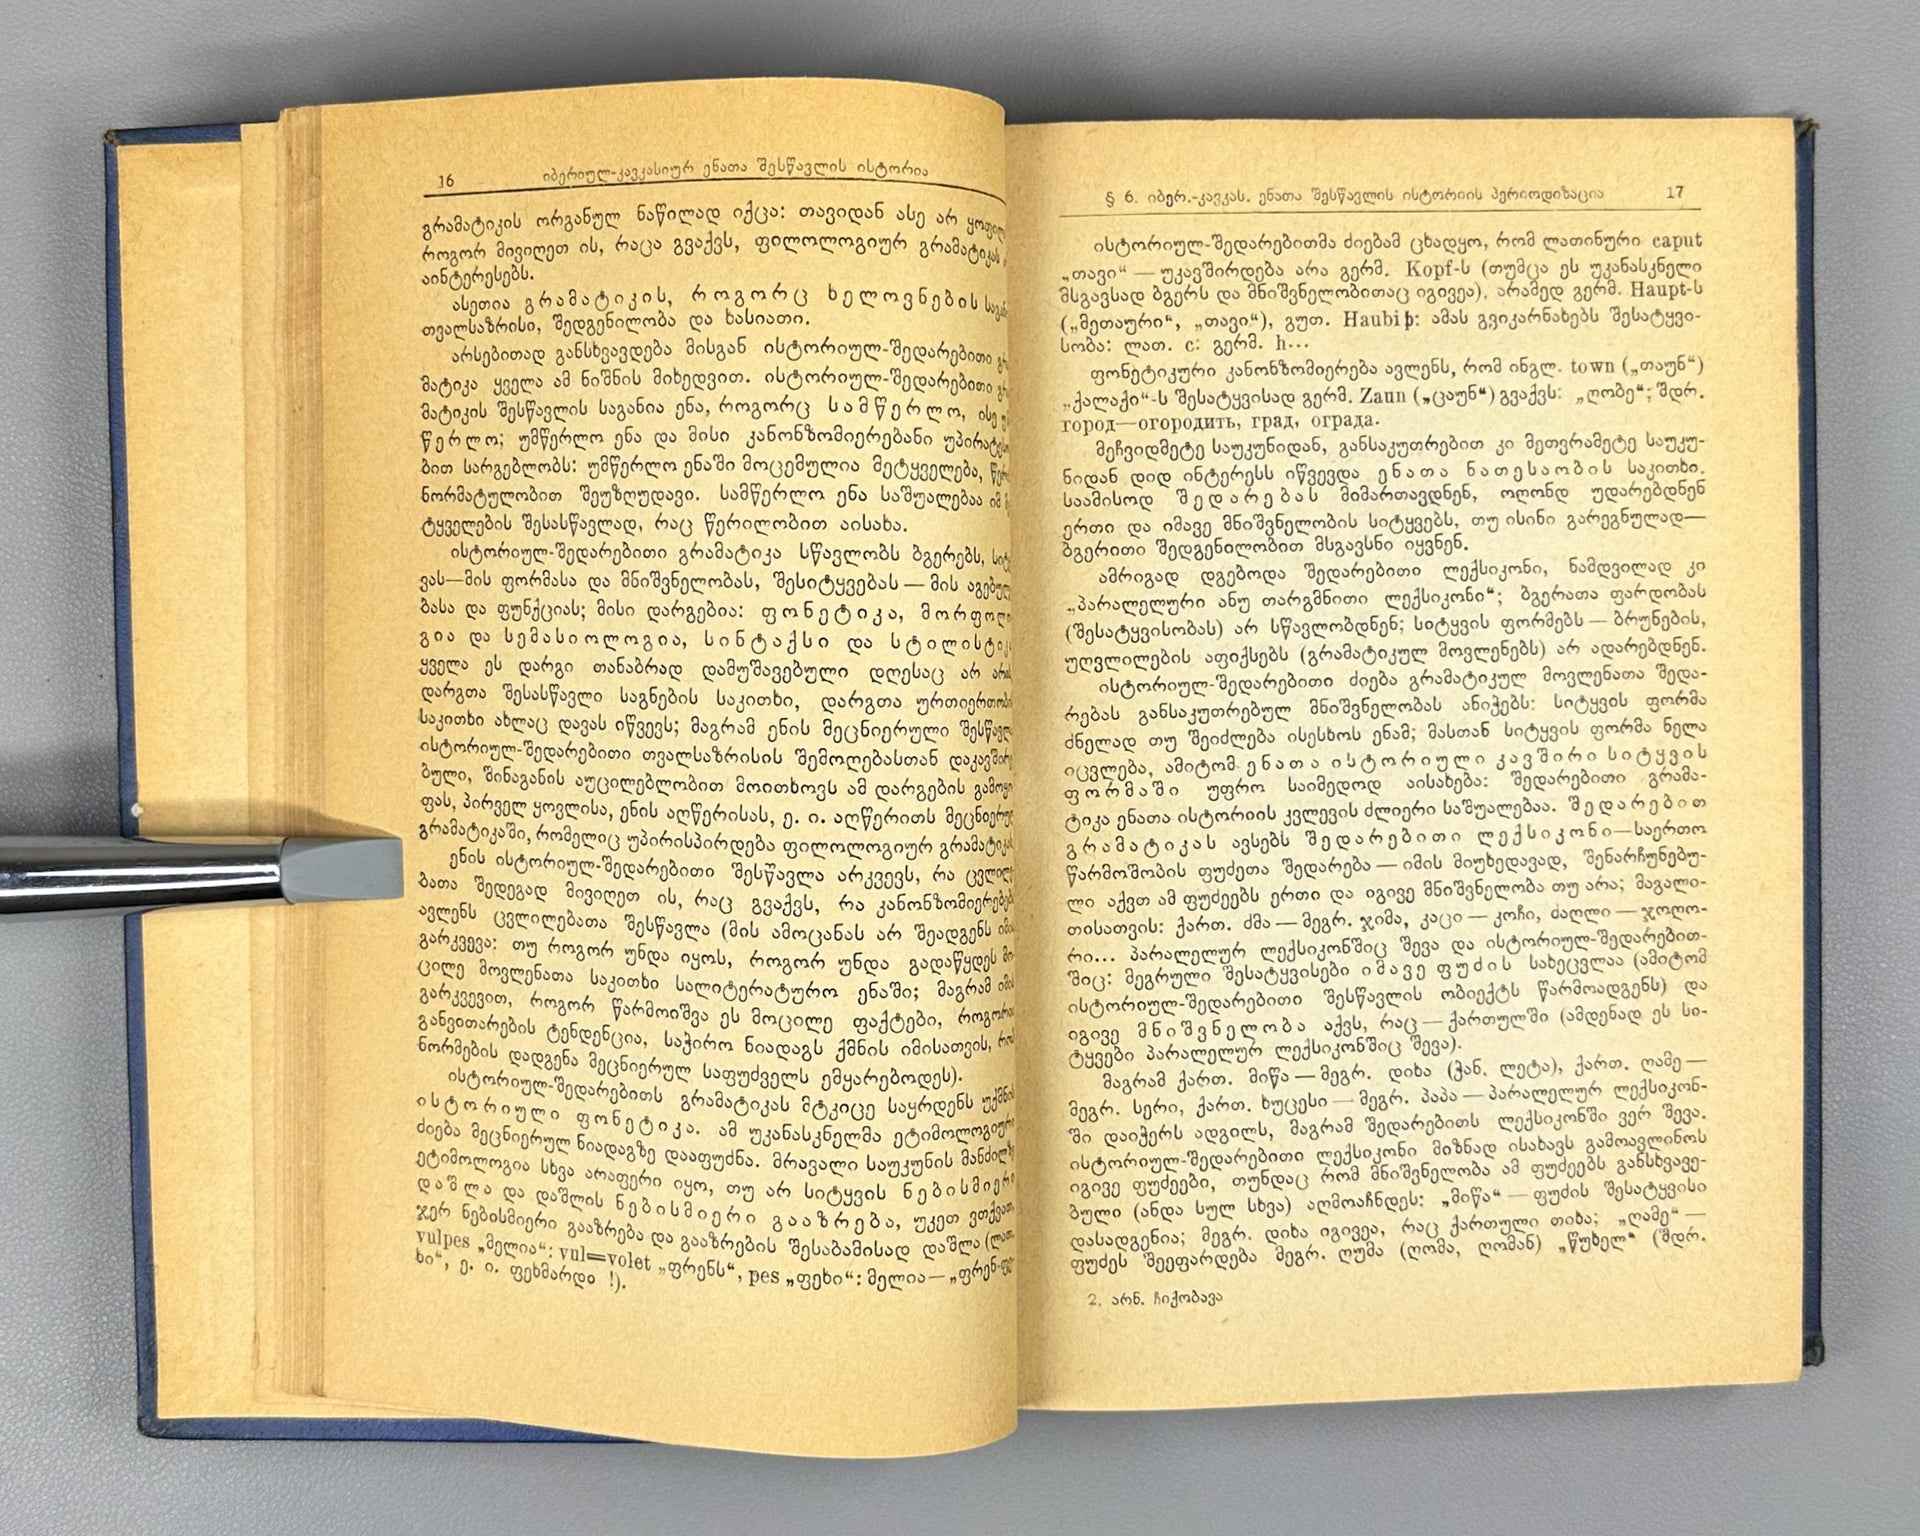 16 იბერიულ-კავკასიურ ენათა შესწავლის ისტორია
გრამატიკის ორგანულ ნაწილად იქცა: თავიდან ასე არ
როგორ მივიღეთ ის, რაცა გვაქვს, ფილოლოგიურ გრამატიკას
აინტერესებს.
ასეთია გრამატიკის, როგორც ხელოვნების
თვალსაზრისი, შედგენილობა და ხასიათი.
არსებითად განსხვავდება მისგან ისტორიულ-შედარებითი
მატიკა ყველა ამ ნიშნის მიხედვით. ისტორიულ-შედარებითი
მატიკის შესწავლის საგანია ენა, როგორც სამწერლო, ისე
წერლო; უმწერლო ენა და მისი კანონზომიერებანი
ბით სარგებლობს: უმწერლო ენაში მოცემულია მეტყველება,
ნორმატულობით შეუზღუდავი. სამწერლო ენა საშუალებაა იმ
ტყველების შესასწავლად, რაც წერილობით აისახა.
ისტორიულ-შედარებითი გრამატიკა სწავლობს ბგერებს,
ვას—მის ფორმასა და მნიშვნელობას, შესიტყვებას — მის
ბასა და ფუნქციას; მისი დარგებია: ფონეტიკა,
გია და სემასიოლოგია, სინტაქსი და
ყველა ეს დარგი თანაბრად დამუშავებული დღესაც არ
დარგთა შესასწავლი საგნების საკითხი, დარგთა
საკითხი ახლაც დავას იწვევს; მაგრამ ენის მეცნიერული
ისტორიულ-შედარებითი თვალსაზრისის შემოღებასთან
ბული, შინაგანის აუცილებლობით მოითხოვს ამ დარგების
ფას, პირველ ყოვლისა, ენის აღწერისას, ე. ი. აღწერითს
გრამატიკაში, რომელიც უპირისპირდება ფილოლოგიურ
ენის ისტორიულ-შედარებითი შესწავლა არკვევს, რა
ბათა შედეგად მივიღეთ ის, რაც გვაქვს, რა
ავლენს ცვლილებათა შესწავლა (მის ამოცანას არ შეადგენს
გარკვევა: თუ როგორ უნდა იყოს, როგორ უნდა გადაწყდეს
ცილე მოვლენათა საკითხი სალიტერატურო ენაში; მაგრამ
გარკვევით, როგორ წარმოიშვა ეს მოცილე ფაქტები,
განვითარების ტენდენცია, საჭირო ნიადაგს ქმნის იმისათვის,
ნორმების დადგენა მეცნიერულ საფუძველს ემყარებოდეს).
ისტორიულ-შედარებითს გრამატიკას მტკიცე საყრდენს
ისტორიული ფონეტიკა. ამ უკანასკნელმა
ძიება მეცნიერულ ნიადაგზე დააფუძნა. მრავალი საუკუნის
ეტიმოლოგია სხვა არაფერი იყო, თუ არ სიტყვის
დაშლა და დაშლის ნებისმიერი გააზრება, უკეთ
ჯერ ნებისმიერი გააზრება და გააზრების შესაბამისად დაშლა
vulpes „მელია“: vul=volet „ფრენს“, pes „ფეხი“: მელია—
ხი“, ე. ი. ფეხმარდი !).
§ 6. იბერ.-კავკას. ენათა შესწავლის ისტორიის პერიოდიზაცია 17
ისტორიულ-შედარებითმა ძიებამ ცხადყო, რომ ლათინური caput
„თავი“ — უკავშირდება არა გერმ. Kopf-ს (თუმცა ეს უკანასკნელი
მსგავსად ბგერს და მნიშვნელობითაც იგივეა), არამედ გერმ. Haupt-ს
(„მეთაური“, „თავი“), გუთ. Haubiþ: ამას გვიკარნახებს შესატყვი-
სობა: ლათ. c: გერმ. h...
ფონეტიკური კანონზომიერება ავლენს, რომ ინგლ. town („თაუნ“)
„ქალაქი“-ს შესატყვისად გერმ. Zaun („ცაუნ“) გვაქვს: „ღობე“; შდრ.
город—огородить, град, ограда.
მეჩვიდმეტე საუკუნიდან, განსაკუთრებით კი მეთვრამეტე საუკუ-
ნიდან დიდ ინტერესს იწვევდა ენათა ნათესაობის საკითხი.
საამისოდ შედარებას მიმართავდნენ, ოღონდ უდარებდნენ
ერთი და იმავე მნიშვნელობის სიტყვებს, თუ ისინი გარეგნულად—
ბგერითი შედგენილობით მსგავსნი იყვნენ.
ამრიგად დგებოდა შედარებითი ლექსიკონი, ნამდვილად კი
„პარალელური ანუ თარგმნითი ლექსიკონი“; ბგერათა ფარდობას
(შესატყვისობას) არ სწავლობდნენ; სიტყვის ფორმებს — ბრუნების,
უღვლილების აფიქსებს (გრამატიკულ მოვლენებს) არ ადარებდნენ.
ისტორიულ-შედარებითი ძიება გრამატიკულ მოვლენათა შედა-
რებას განსაკუთრებულ მნიშვნელობას ანიჭებს: სიტყვის ფორმა
ძნელად თუ შეიძლება ისესხოს ენამ; მასთან სიტყვის ფორმა ნელა
იცვლება, ამიტომ ენათა ისტორიული კავშირი სიტყვის
ფორმაში უფრო საიმედოდ აისახება: შედარებითი გრამა-
ტიკა ენათა ისტორიის კვლევის ძლიერი საშუალებაა. შედარებით
გრამატიკას ავსებს შედარებითი ლექსიკონი—საერთო
წარმოშობის ფუძეთა შედარება — იმის მიუხედავად, შენარჩუნებუ-
ლი აქვთ ამ ფუძეებს ერთი და იგივე მნიშვნელობა თუ არა; მაგალი-
თისათვის: ქართ. ძმა — მეგრ. ჯიმა, კაცი — კოჩი, ძაღლი — ჯოღო-
რი... პარალელურ ლექსიკონშიც შევა და ისტორიულ-შედარებით-
შიც: მეგრული შესატყვისები იმავე ფუძის სახეცვლაა (ამიტომ
ისტორიულ-შედარებითი შესწავლის ობიექტს წარმოადგენს) და
იგივე მნიშვნელობა აქვს, რაც — ქართულში (ამდენად ეს სი-
ტყვები პარალელურ ლექსიკონშიც შევა).
მაგრამ ქართ. მიწა — მეგრ. დიხა (ჭან. ლეტა), ქართ. ღამე —
მეგრ. სერი, ქართ. ხუცესი — მეგრ. პაპა — პარალელურ ლექსიკონ-
ში დაიჭერს ადგილს, მაგრამ შედარებითს ლექსიკონში ვერ შევა.
ისტორიულ-შედარებითი ლექსიკონი მიზნად ისახავს გამოავლინოს
იგივე ფუძეები, თუნდაც რომ მნიშვნელობა ამ ფუძეებს განსხვავე-
ბული (ანდა სულ სხვა) აღმოაჩნდეს: „მიწა“ — ფუძის შესატყვისი
დასადგენია; მეგრ. დიხა იგივეა, რაც ქართული თიხა; „ღამე“ —
ფუძეს შეეფარდება მეგრ. ღუმა (ღომა, ღომან) „წუხელ“ (შდრ.
2. არნ. ჩიქობავა